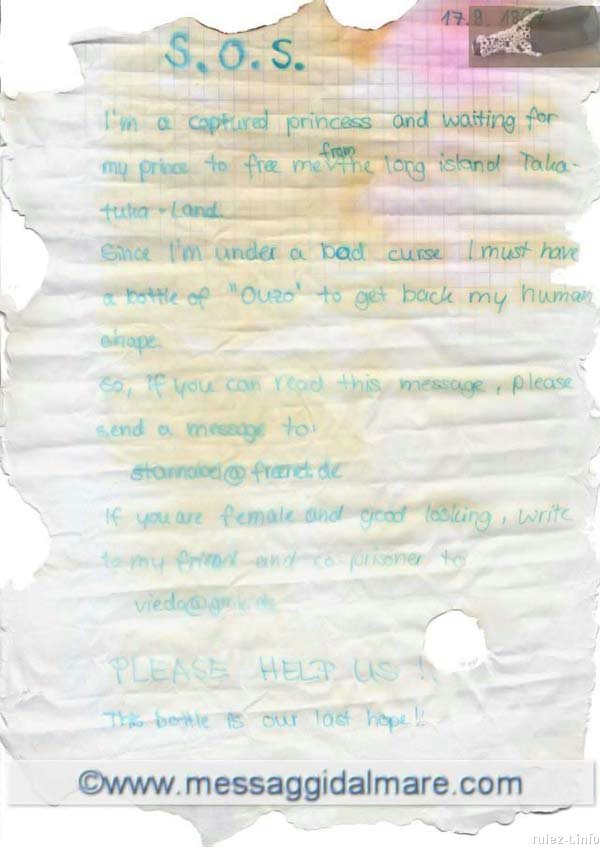 17.8.
S.O.S.
I'm a captured princess and waiting for
my prince to free me from the long island Taka-
tuka-Land.
Since I'm under a bad curse I must have
a bottle of "Ouzo" to get back my human
shape.
So, if you can read this message, please
send a message to:
stannabel@freenet.de
If you are female and good looking, write
to my friend and co prisoner to
PLEASE HELP US !!
This bottle is our last hope!!
©www.messaggidalmare.com
rulez-t.info